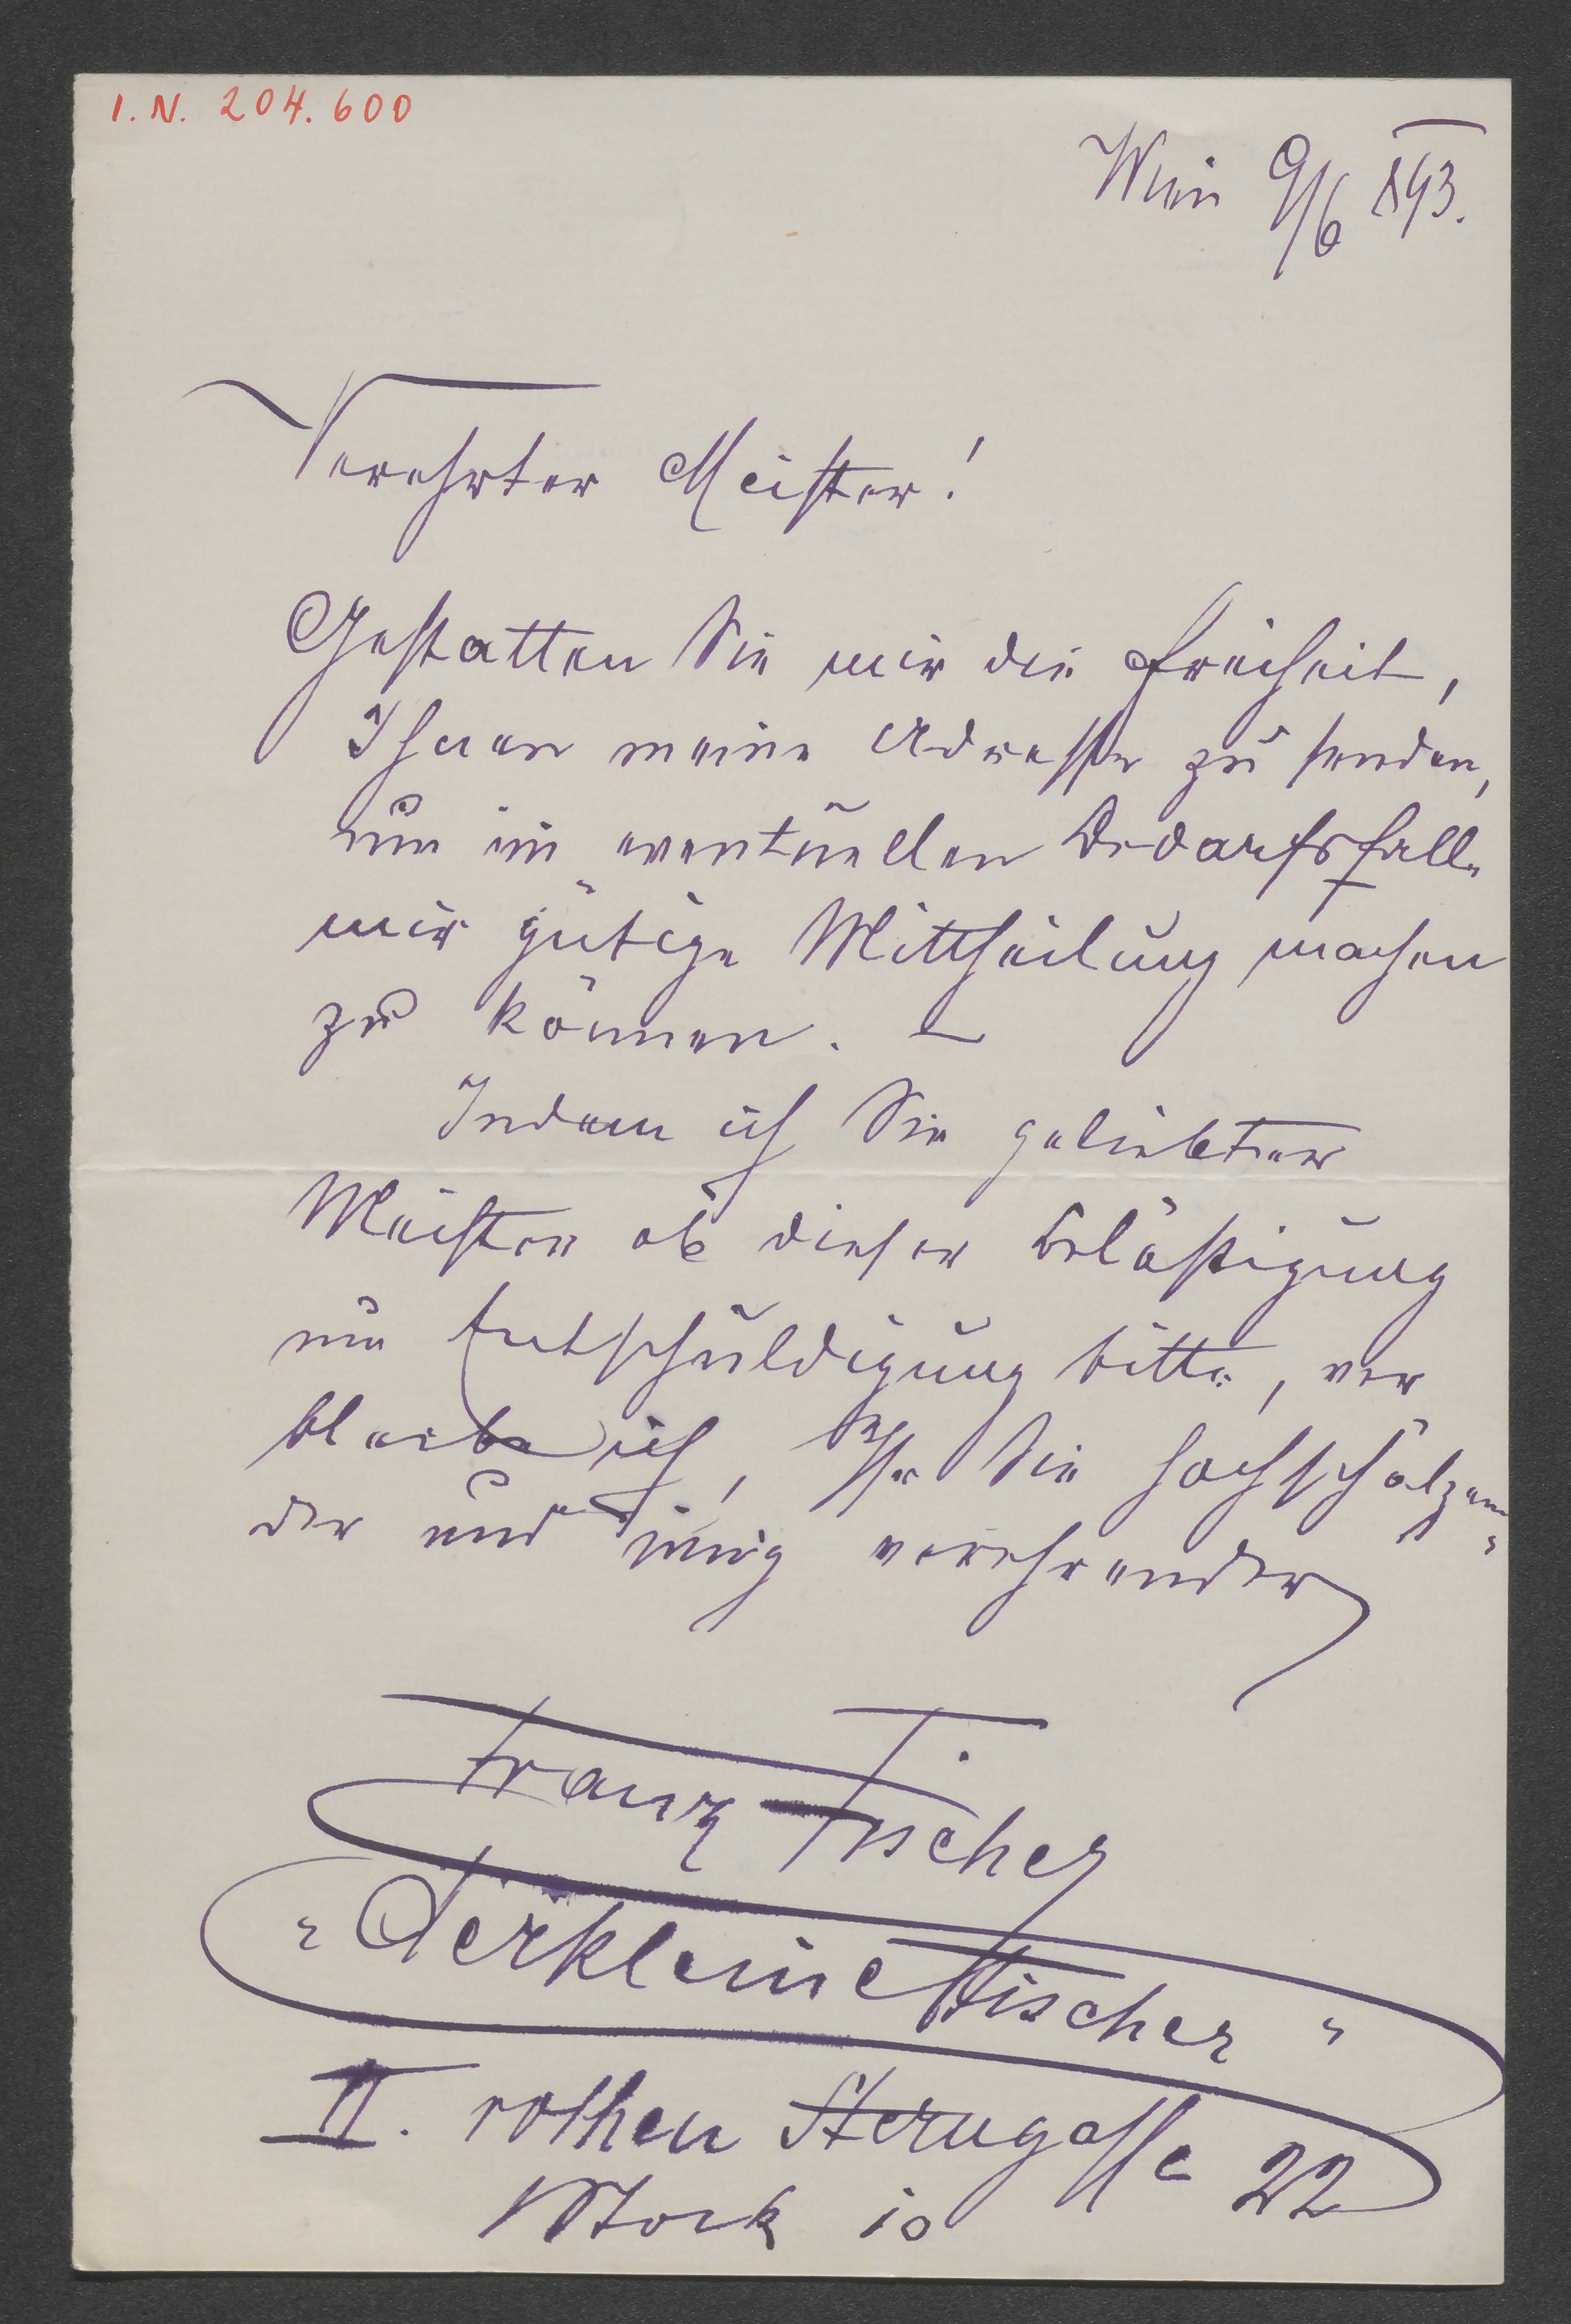 I. N. 204.600
Wien 9/6 893.
Verehrter Meister!
Gestatten Sie mir die Freiheit,
Ihnen meine Adresse zu senden,
um im eventuellen Bedarfsfalle
mir gütige Mittheilung machen
zu können. –
Indem ich Sie geliebter
Meister ob dieser Belästigung
um Entschuldigung bitte, ver
bleibe ich, Ihr Sie hochschätzen-
der und innig verehrender
Franz Fischer
"Der kleine Fischer"
II. rothen Sterngasse 22
Stock 10